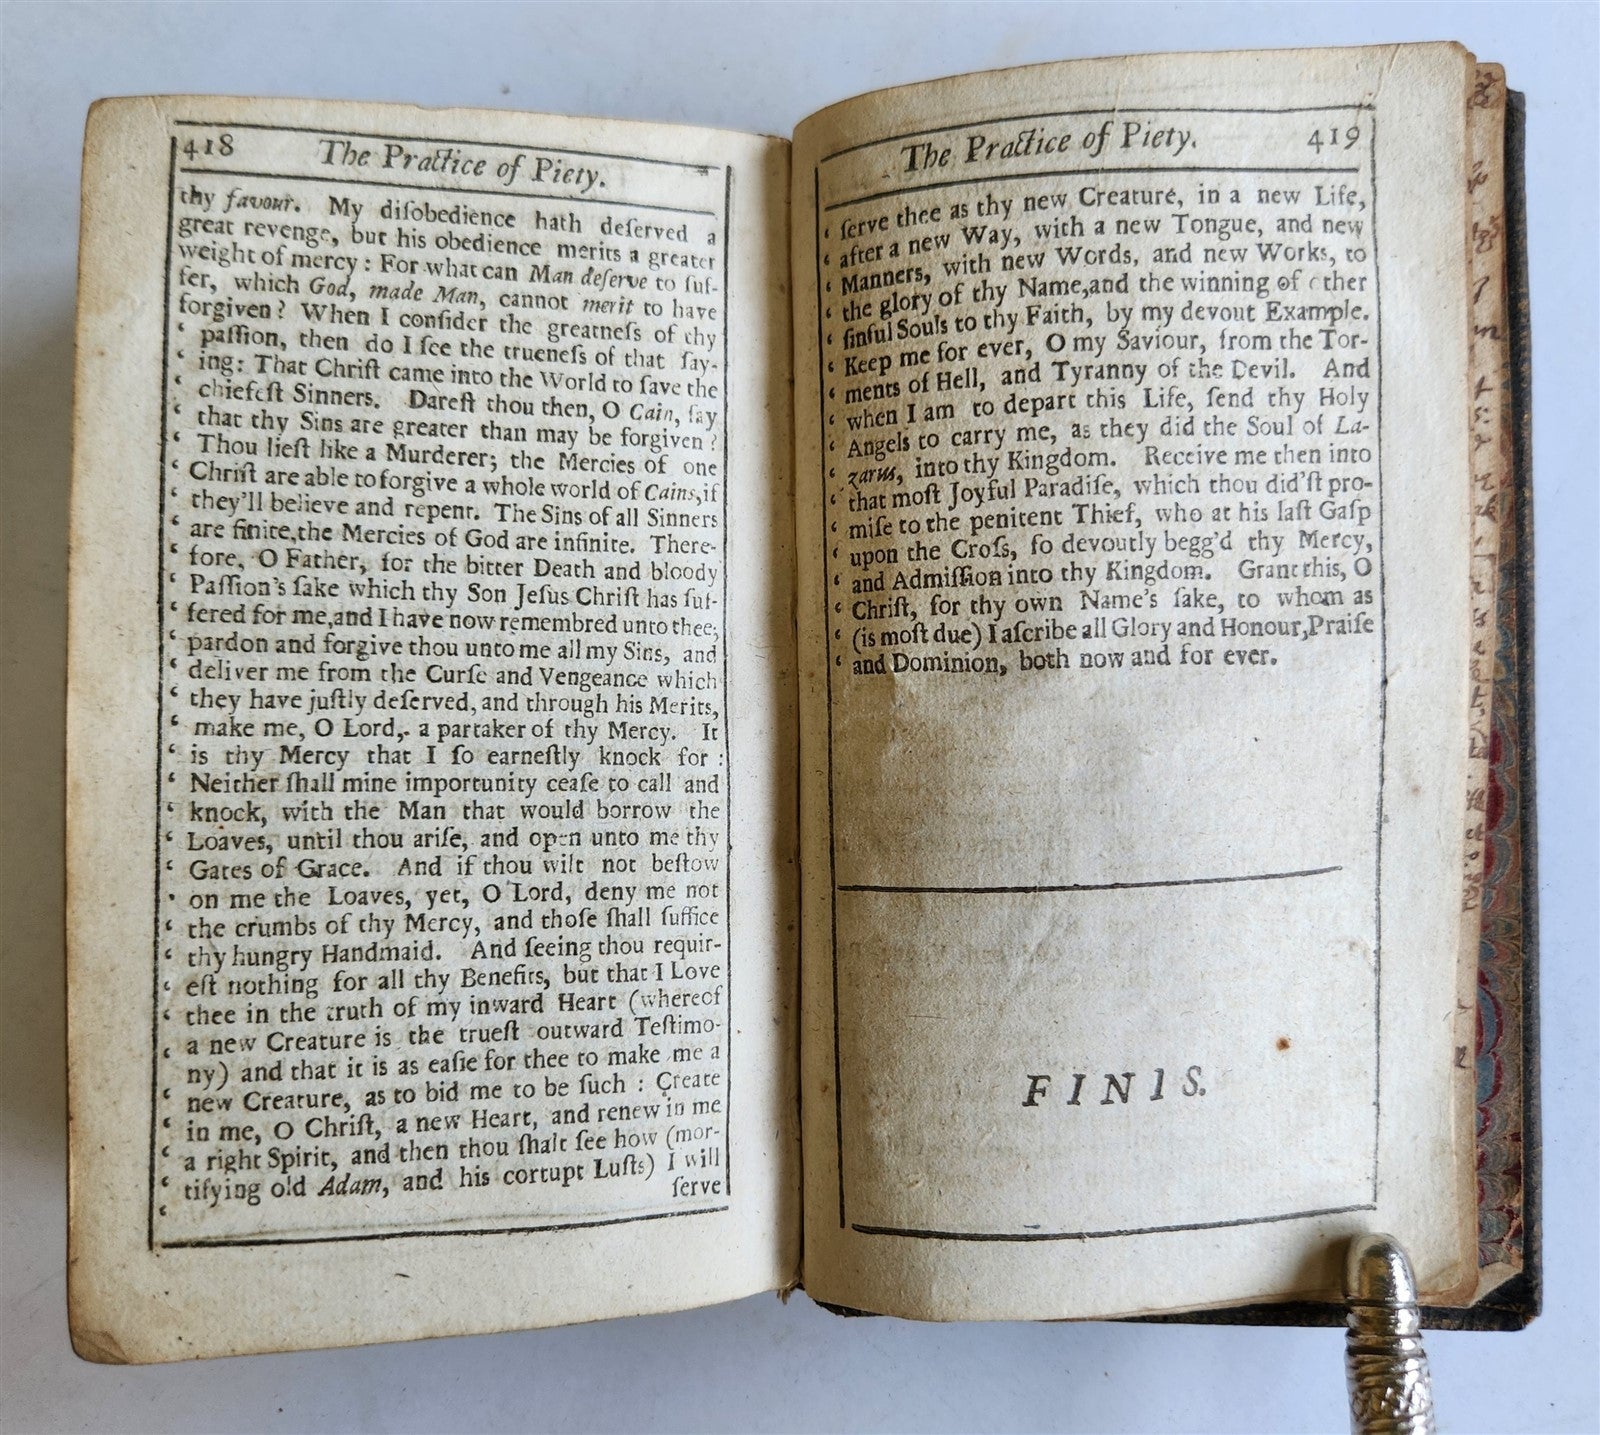 418 The Practice of Piety.
thy favour. My diſobedience hath deſerved a
great revenge, but his obedience merits a greater
weight of mercy : For what can Man deſerve to ſuf-
fer, which God, made Man, cannot merit to have
forgiven ? When I conſider the greatneſs of thy
‘ paſſion, then do I ſee the trueneſs of that ſay-
‘ ing: That Chriſt came into the World to ſave the
‘ chiefeſt Sinners. Dareſt thou then, O Cain, ſay
‘ that thy Sins are greater than may be forgiven ?
‘ Thou lieſt like a Murderer; the Mercies of one
‘ Chriſt are able to forgive a whole world of Cains, if
‘ they'll believe and repent. The Sins of all Sinners
‘ are finite, the Mercies of God are infinite. There-
‘ fore, O Father, for the bitter Death and bloody
‘ Paſſion's ſake which thy Son Jeſus Chriſt has ſuf-
‘ fered for me, and I have now remembred unto thee;
‘ pardon and forgive thou unto me all my Sins, and
‘ deliver me from the Curſe and Vengeance which
‘ they have juſtly deſerved, and through his Merits,
‘ make me, O Lord, a partaker of thy Mercy. It
‘ is thy Mercy that I ſo earneſtly knock for :
‘ Neither ſhall mine importunity ceaſe to call and
‘ knock, with the Man that would borrow the
‘ Loaves, until thou ariſe, and open unto me thy
‘ Gates of Grace. And if thou wilt not beſtow
‘ on me the Loaves, yet, O Lord, deny me not
‘ the crumbs of thy Mercy, and thoſe ſhall ſuffice
‘ thy hungry Handmaid. And ſeeing thou requir-
‘ eſt nothing for all thy Benefits, but that I Love
‘ thee in the truth of my inward Heart (whereof
‘ a new Creature is the trueſt outward Teſtimo-
‘ ny) and that it is as eaſie for thee to make me a
‘ new Creature, as to bid me to be ſuch : Create
‘ in me, O Chriſt, a new Heart, and renew in me
‘ a right Spirit, and then thou ſhalt ſee how (mor-
‘ tifying old Adam, and his corrupt Luſts) I will
ſerve
The Practice of Piety. 419
‘ ſerve thee as thy new Creature, in a new Life,
‘ after a new Way, with a new Tongue, and new
‘ Manners, with new Words, and new Works, to
‘ the glory of thy Name, and the winning of other
‘ ſinful Souls to thy Faith, by my devout Example.
‘ Keep me for ever, O my Saviour, from the Tor-
‘ ments of Hell, and Tyranny of the Devil. And
‘ when I am to depart this Life, ſend thy Holy
‘ Angels to carry me, as they did the Soul of La-
‘ zarus, into thy Kingdom. Receive me then into
‘ that moſt Joyful Paradiſe, which thou did'ſt pro-
‘ miſe to the penitent Thief, who at his laſt Gaſp
‘ upon the Croſs, ſo devoutly begg'd thy Mercy,
‘ and Admiſſion into thy Kingdom. Grant this, O
‘ Chriſt, for thy own Name's ſake, to whom as
‘ (is moſt due) I aſcribe all Glory and Honour, Praiſe
‘ and Dominion, both now and for ever.
FINIS.